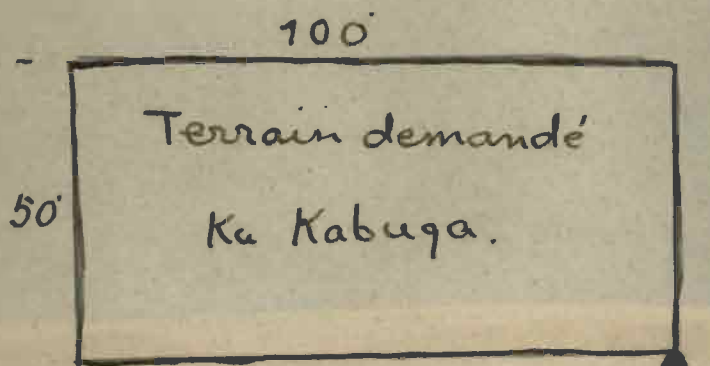 100'
Terrain demandé
50'
Ku Kabuga.